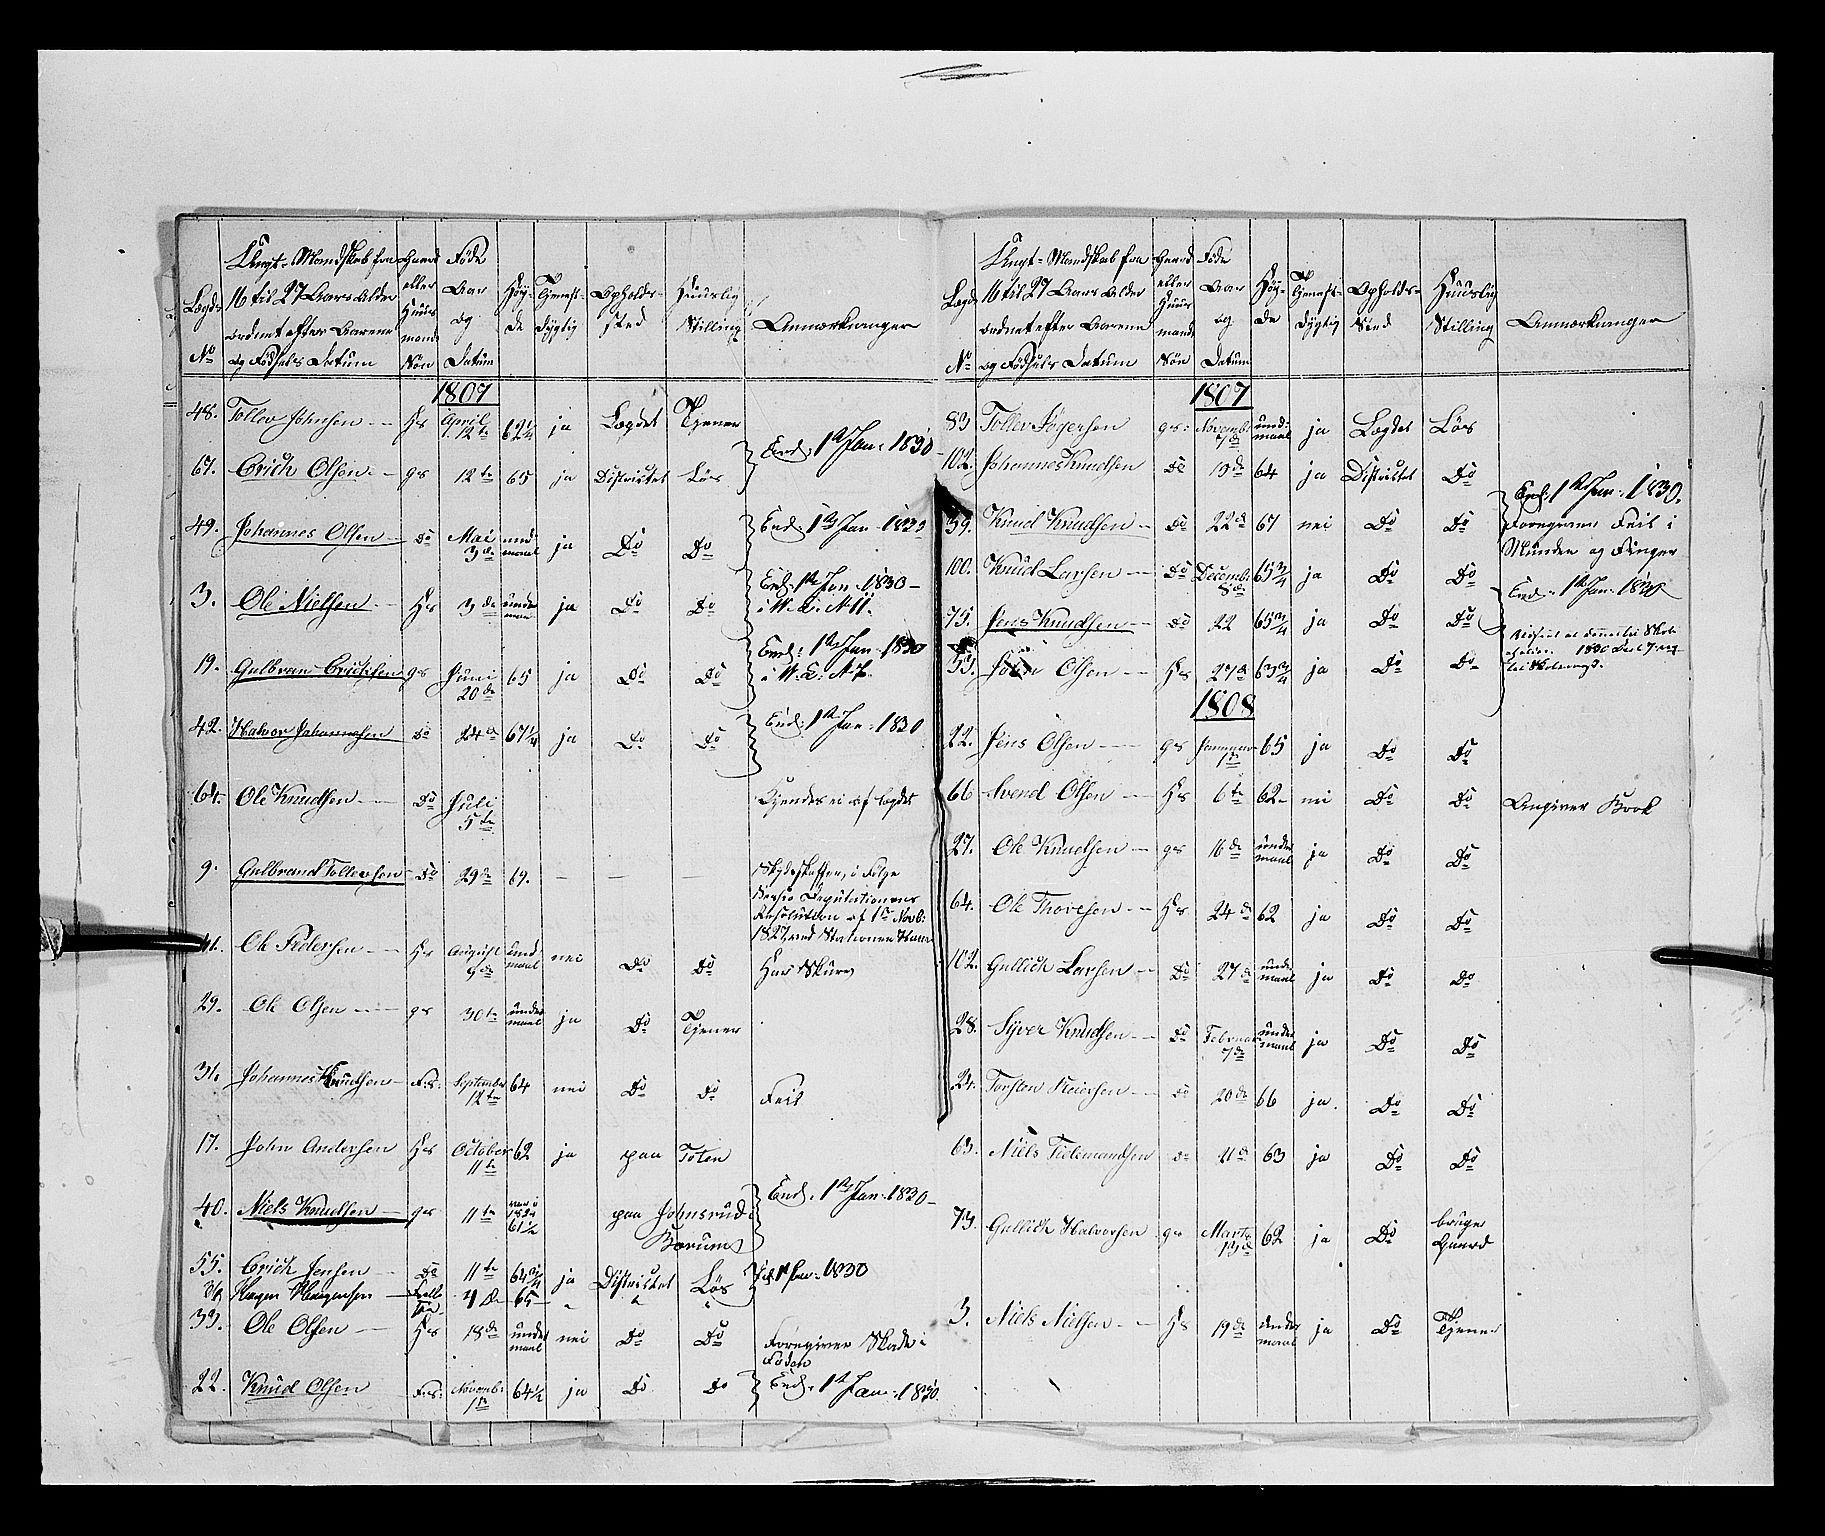 Lægds No | Ungt-Mandskab fra 16 til 27 Aars Alder ordnet efter Aarene og Fødsels Datum | Gaard eller Huusmands Søn | Føde Aar og Datum | Høyde | Tjenestdygtig | Opholdssted | Huuslig Stilling | Anmærkninger
1807
48. Tollev Johnsen Hs April 12te 62 1/4 ja Lægdet Tjener
67. Erich Olsen gs 12te 65 ja Districtet Løs 1ste Jan: 1830
49. Johannes Olsen Do Mai 3de und: maal ja Do Do 1ste Jan: 1830
3. Ole Nielsen Hs 3de under maal ja Do Do 1ste Jan: 1830
19. Gulbran Erichsen gs Juni 20de 65 ja Do Do 1ste Jan: 1830
42. Halvor Johannesen Do 24de 67 1/4 ja Do Do 1ste Jan: 1830
64. Ole Knudsen Do Juli 5te Kjendes ei af Lægdet
9. Gulbrand Tollefsen Do 29de 69. — — — Skydsskaffer, i Følge
Deputationens
Resolution af 1ste Novb:
1827, ved Stationen
41. Ole Pedersen Hs August 9de und maal nei Do Do Har Skurv
29. Ole Olsen gs 30te under maal ja Do Tjener
31. Johannes Knudsen F.s: September 12te 64 nei Do Do Feil
17. John Andersen Hs October 11te 62 ja paa Toten
40. Niels Knudsen gs 11te var i 1824 61 1/2 paa Johnsrud Bærum 1ste Jan: 1830
55. Erich Jensen Do 11te 64 3/4 ja Districtet Løs 1 Jan: 1830
36 Hagen Haagensen 65
33. Ole Olsen Hs 18de under maal nei Do Do Foregiver Skade i
Foden
22. Knud Olsen F.s: Novemb: 1ste 64 1/2 ja Do Do 1ste Jan: 1830
Lægds No | Ungt-Mandskab fra 16 til 27 Aars Alder ordnet efter Aarene og Fødsels Datum | Gaard eller Huusmands Søn | Føde Aar og Datum | Høyde | Tjenestdygtig | Opholds Sted | Huuslig Stilling | Anmærkninger
1807
83 Tollev gs: Novemb: 7de und: maal ja Lægdet Løs
102. Johannes Knudsen Do 19de 64 ja Districtet Do
39. Knud Knudsen Do 22de 67 nei Do Do 1ste Jan: 1830.
Foregiver Feil i
Munden og Finger
100. Knud Larsen Do Decemb: 8de 65 3/4 ja Do Do
75. Jens Knudsen Do 22 65 3/4 ja Do Do 1ste Jan: 1830
53. Olsen Hs 27de 63 3/4 ja Do Do
1808
22. Jens Olsen gs Januar 1ste 65 ja Do Do
66 Svend Olsen Hs 6te 62 nei Do Do Angiver Brok
27. Ole Knudsen gs 16de under maal ja Do Do
64. Ole Thoresen Hs 24de 62 ja Do Do
102. Gullich Larsen Do 27de under maal ja Do Do
28. Syver Knudsen Do Februar 7de under maal ja Do Do
24. Torsten Do 20de 66 ja. Do Do
63. Niels Tidemandsen Do 21de 63 ja Do Do
73. Gullich Halvorsen gs Marts 13de 62 ja Do bruger Gaard
3. Niels Nielsen Hs 19de under maal ja Do Tjener